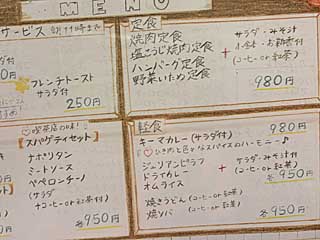 MENU
サービス 朝11時まで
サラダ付
円
フレンチトースト
サラダ付
250円
定食
焼肉定食
塩こうじ焼肉定食
ハンバーグ定食
野菜いため定食
+
サラダ・みそ汁
小鉢・お新香付
コーヒー(or 紅茶)
980円
♡喫茶店の味!
【スパゲティセット】
ナポリタン
ミートソース
ペペロンチーノ
(サラダ
+コーヒーor紅茶付)
各950円
軽食
キーマカレー(サラダ付) 980円
♡ひき肉と色々なスパイスのハーモニー♪
ジューリアンピラフ
ドライカレー
オムライス
+
サラダ・みそ汁付
(コーヒーor 紅茶)
各950円
焼きうどん(コーヒーor 紅茶)
焼ソバ(コーヒーor 紅茶)
各950円